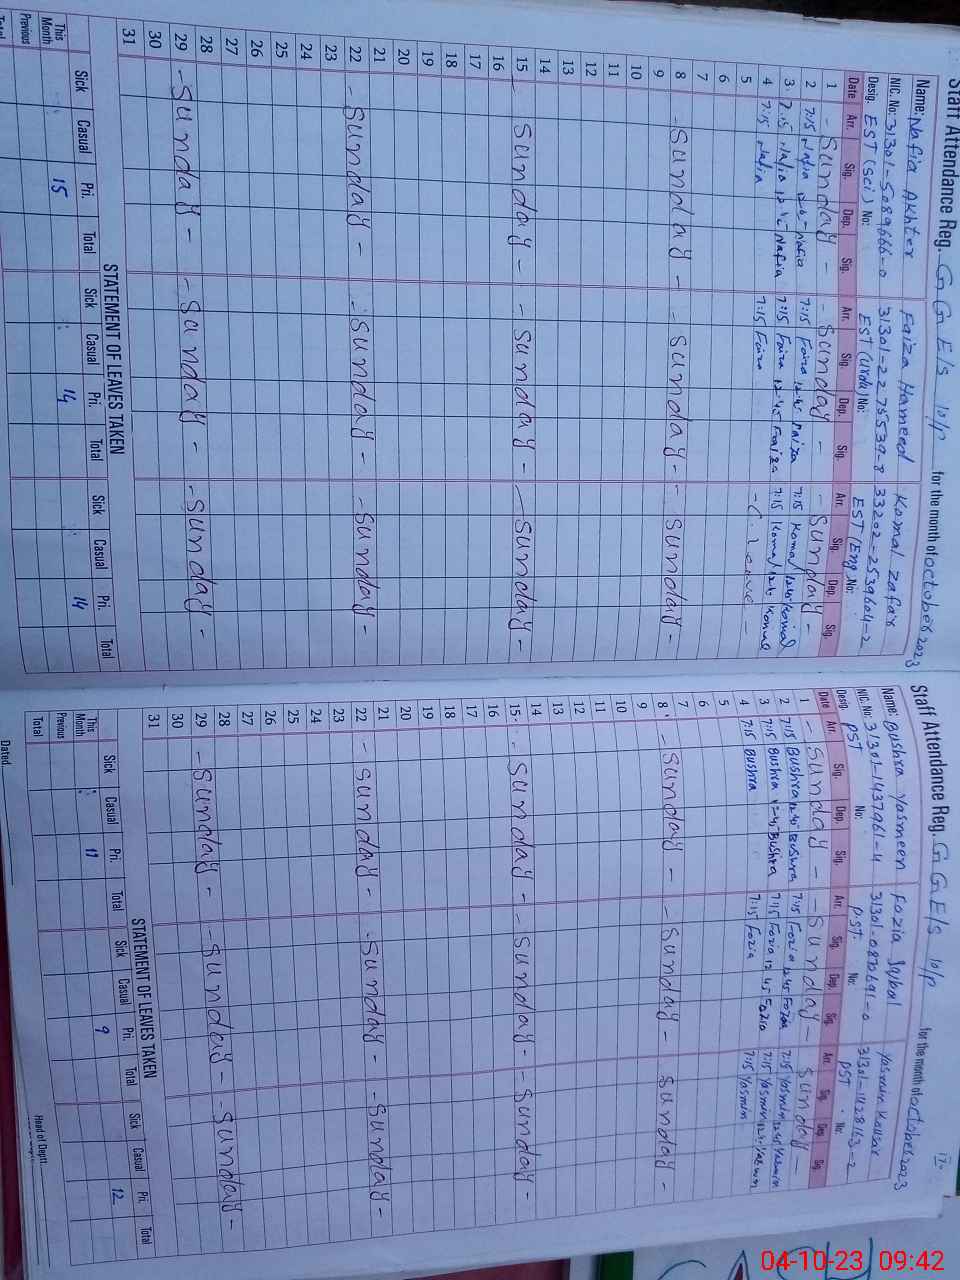 Staff Attendance Reg. G G E/S 10/P for the month of october 2023
Name: Nafia Akhter Faiza Hameed Komal Zafar
NIC. No: 31301-5089666-0 31301-2275539-8 33202-2539604-2
Desig. EST (Sci) No: EST (Urdu) No: EST (Eng) No:
Date Arr. Sig. Dep. Sig. Arr. Sig. Dep. Sig. Arr. Sig. Dep. Sig.
1 - Sunday - - Sunday - - Sunday -
2 7:15 Nafia 12:45 Nafia 7:15 Faiza 12:45 Faiza 7:15 Komal 12:45 Komal
3 7:15 Nafia 12:45 Nafia 7:15 Faiza 12:45 Faiza 7:15 Komal 12:45 Komal
4 7:15 Nafia 7:15 Faiza - C. Leave -
5
6
7
8 - Sunday - - Sunday - - Sunday -
9
10
11
12
13
14
15 Sunday - - Sunday - - Sunday -
16
17
18
19
20
21
22 - Sunday - - Sunday - - Sunday -
23
24
25
26
27
28
29 - Sunday - - Sunday - - Sunday -
30
31
STATEMENT OF LEAVES TAKEN
Sick Casual Pri. Total Sick Casual Pri. Total Sick Casual Pri. Total
This Month 15 14 14
Previous
Total
Staff Attendance Reg. G G E/S 10/P for the month of october 2023
Name: Bushra Yasmeen Fozia Iqbal Yasmin Kausar
NIC. No: 31301-1437961-4 31301-0870691-0 31301-1428163-2
Desig. PST No: PST No: PST No:
Date Arr. Sig. Dep. Sig. Arr. Sig. Dep. Sig. Arr. Sig. Dep. Sig.
1 - Sunday - - Sunday - Sunday -
2 7:15 Bushra 12:45 Bushra 7:15 Fozia 12:45 Fozia 7:15 Yasmin 12:45 Yasmin
3 7:15 Bushra 12:45 Bushra 7:15 Fozia 12:45 Fozia 7:15 Yasmin 12:45 Yasmin
4 7:15 Bushra 7:15 Fozia 7:15 Yasmin
5
6
7
8 - Sunday - - Sunday - Sunday -
9
10
11
12
13
14
15 - Sunday - - Sunday - - Sunday -
16
17
18
19
20
21
22 - Sunday - - Sunday - - Sunday -
23
24
25
26
27
28
29 - Sunday - - Sunday - - Sunday -
30
31
STATEMENT OF LEAVES TAKEN
Sick Casual Pri. Total Sick Casual Pri. Total Sick Casual Pri. Total
This Month 11 9 12
Previous
Total
Dated Head of Deptt.
04-10-23 09:42